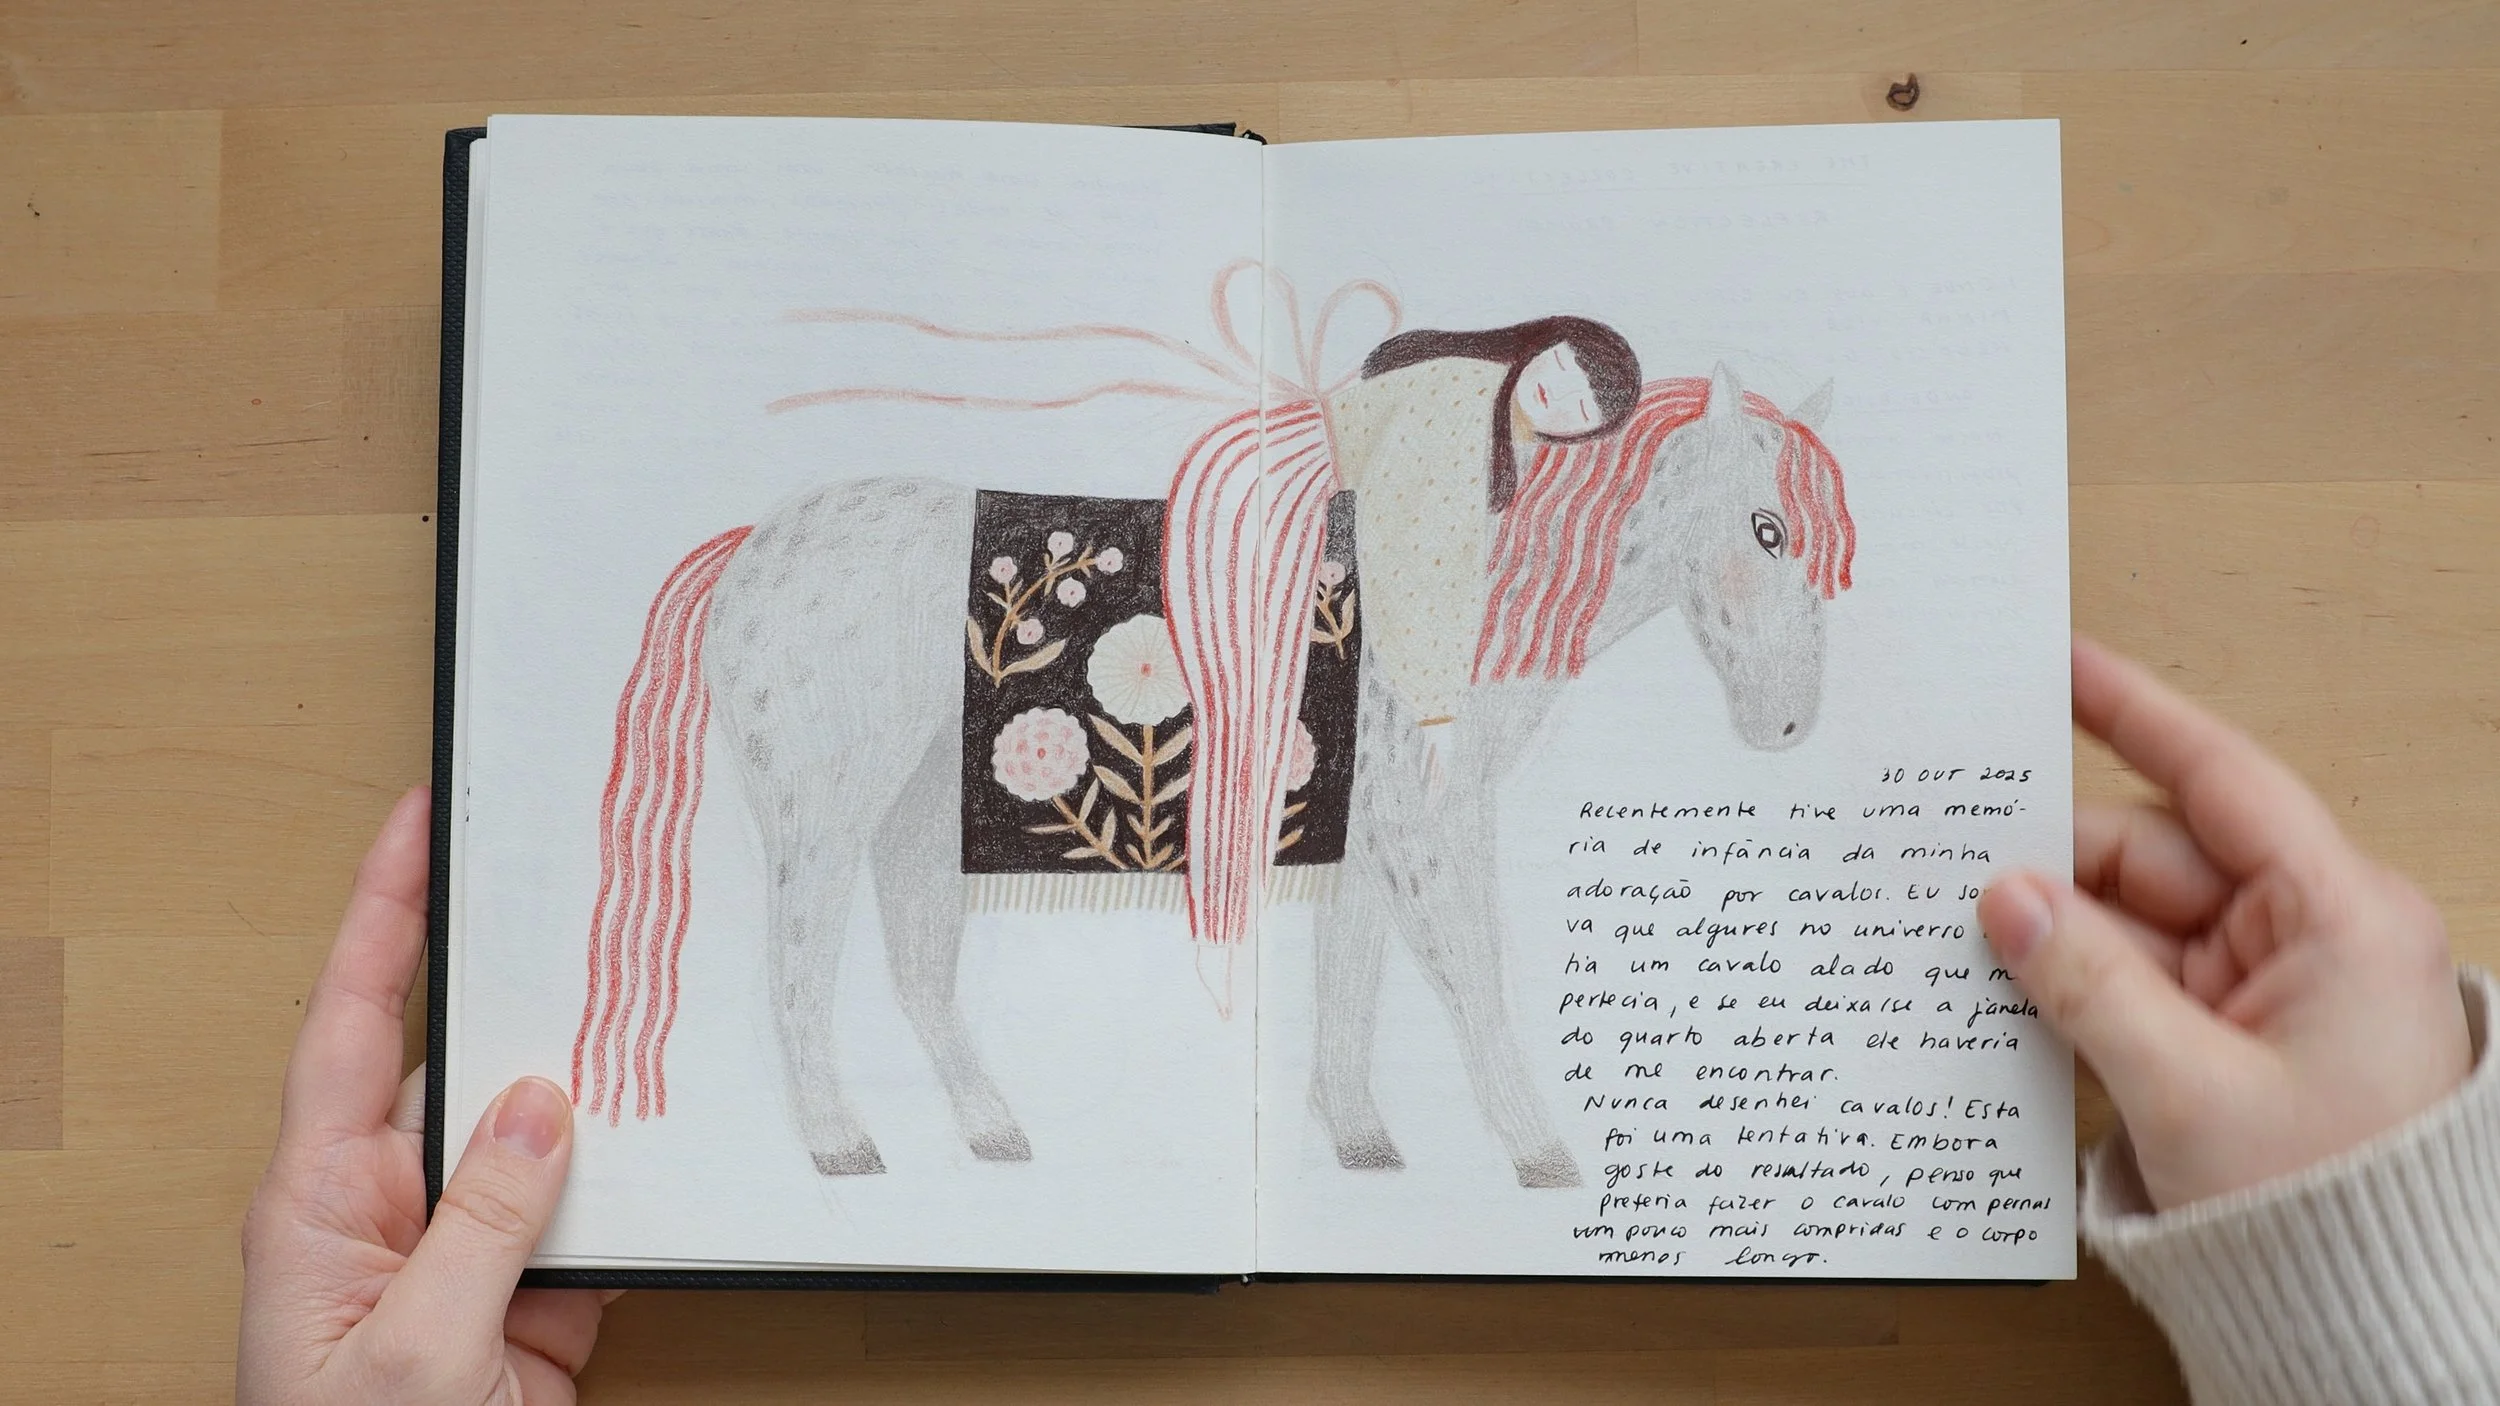 30 OUT 2025
Recentemente tive uma memó-
ria de infância da minha
adoração por cavalos. Eu
va que algures no universo
tia um cavalo alado que
pertecia, e se eu deixasse a janela
do quarto aberta ele haveria
de me encontrar.
Nunca desenhei cavalos! Esta
foi uma tentativa. Embora
goste do resultado, penso que
preferia fazer o cavalo com pernas
um pouco mais compridas e o corpo
menos longo.